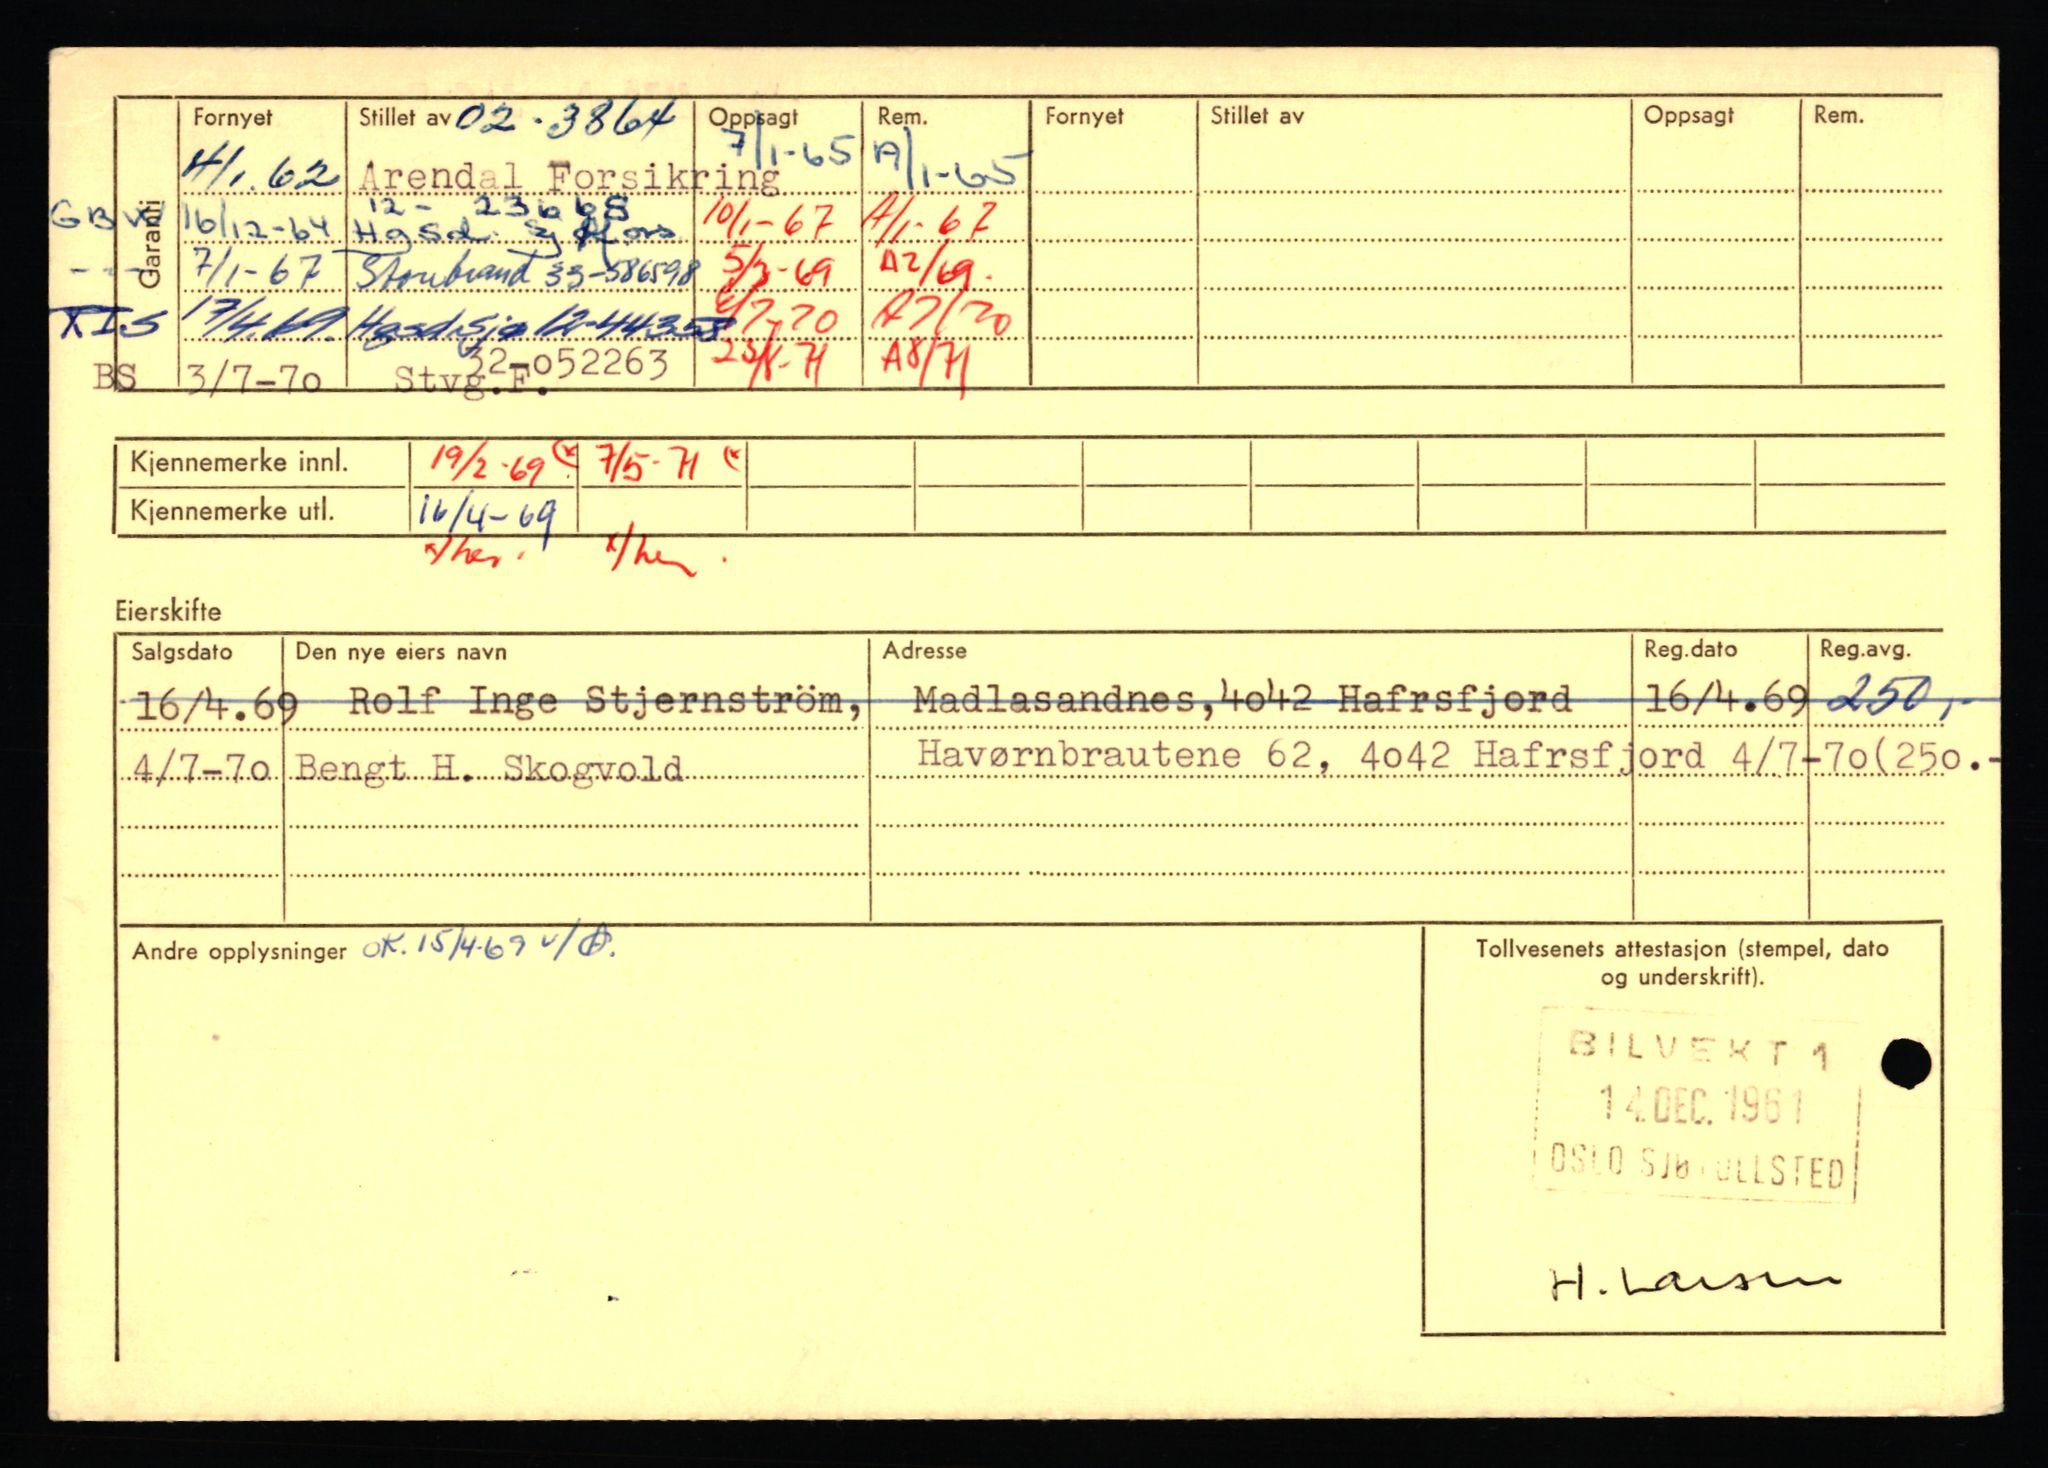 Garanti
Fornyet Stillet av 02-3864 Oppsagt Rem. Fornyet Stillet av Oppsagt Rem.
4/1.62 Arendal Forsikring 7/1-65 A/1-65
16/12-64 12- 23668 Hgsd. Sjøfors 10/1-67 A/1-67
7/1-67 Storebrand 33-586598 5/3-69 A2/69.
XIS 17/4.69. Hgsd.Sjø 12-44358 7-70 A7/70
BS 3/7-7o Stvg.F. 32-o52263 A8/71
Kjennemerke innl. 19/2-69 (x 7/5-71 (x
Kjennemerke utl. 16/4-69
x/her. x/her.
Eierskifte
Salgsdato Den nye eiers navn Adresse Reg.dato Reg.avg.
16/4.69 Rolf Inge Stjernström, Madlasandnes,4o42 Hafrsfjord 16/4.69 250,-
4/7-7o Bengt H. Skogvold Havørnbrautene 62, 4o42 Hafrsfjord 4/7-7o(25o.-
Andre opplysninger OK. 15/4-69 v/
Tollvesenets attestasjon (stempel, dato
og underskrift).
BILVEKT 1
14.DEC.1961
OSLO SJØTOLLSTED
H. Larsen